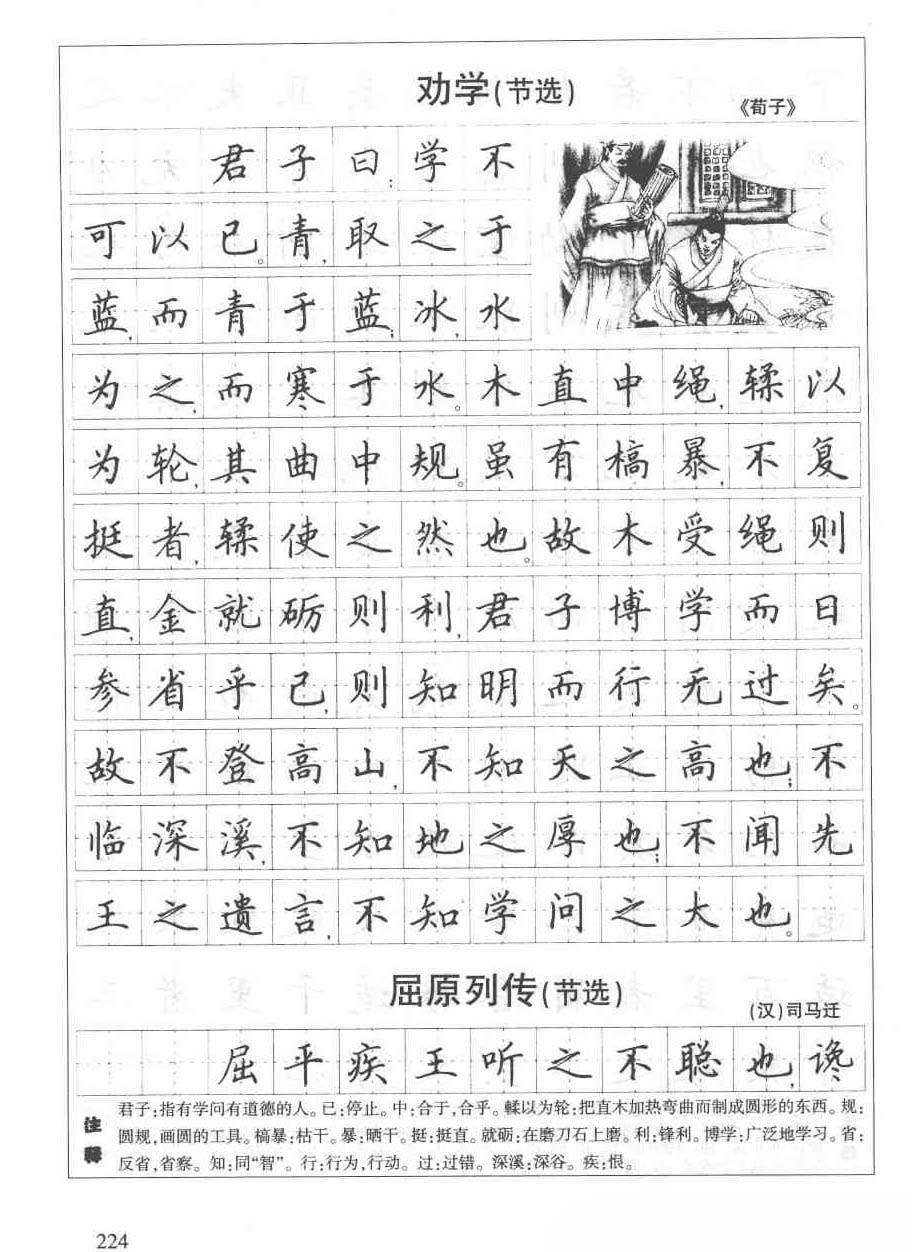 劝学(节选)
《荀子》
君子曰:学不
可以已。青,取之于
蓝,而青于蓝;冰,水
为之,而寒于水。木直中绳,輮以
为轮,其曲中规。虽有槁暴,不复
挺者,輮使之然也。故木受绳则
直,金就砺则利,君子博学而日
参省乎己,则知明而行无过矣。
故不登高山,不知天之高也;不
临深溪,不知地之厚也;不闻先
王之遗言,不知学问之大也。
屈原列传(节选)
(汉)司马迁
屈平疾王听之不聪也,谗
注释
君子:指有学问有道德的人。已:停止。中:合于,合乎。輮以为轮:把直木加热弯曲而制成圆形的东西。规:
圆规,画圆的工具。槁暴:枯干。暴:晒干。挺:挺直。就砺:在磨刀石上磨。利:锋利。博学:广泛地学习。省:
反省,省察。知:同“智”。行:行为,行动。过:过错。深溪:深谷。疾:恨。
224